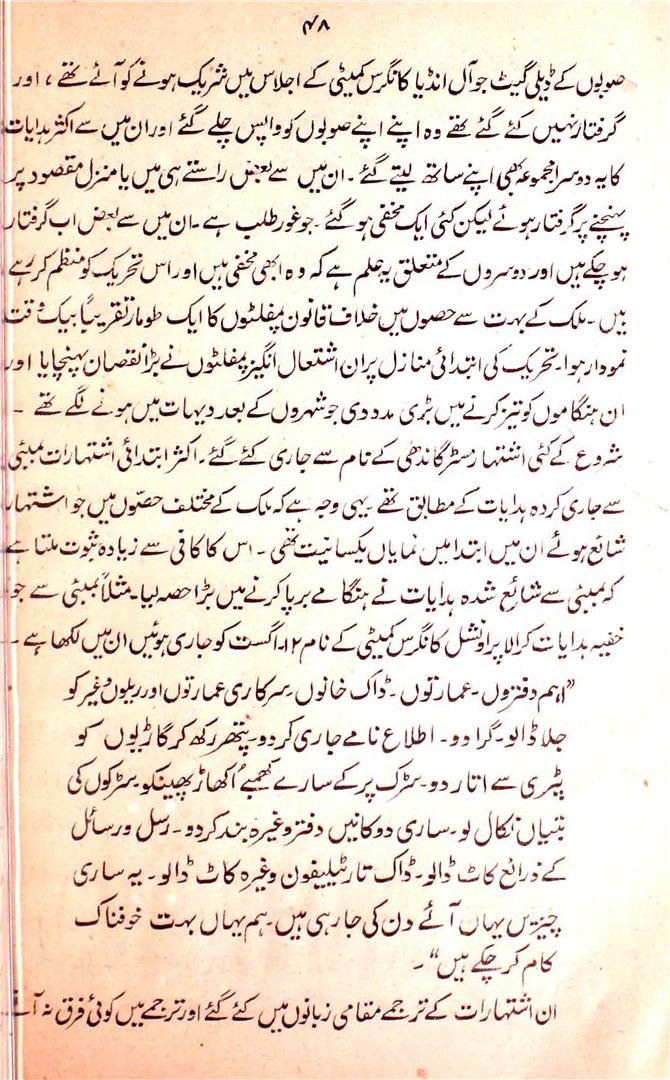 ۴۸
صوبوں کے ڈیلی گیٹ جو آل انڈیا کانگرس کمیٹی کے اجلاس میں شریک ہونے کو آئے تھے ، اور
گرفتار نہیں کئے گئے تھے وہ اپنے اپنے صوبوں کو واپس چلے گئے اور ان میں سے اکثر ہدایات
کا یہ دوسرا مجموعہ بھی اپنے ساتھ لیتے گئے ۔ ان میں سے بعض راستے ہی میں یا منزل مقصود پر
پہنچنے پر گرفتار ہوئے لیکن کئی ایک مخفی ہو گئے ۔ جو غور طلب ہے ۔ ان میں سے بعض اب گرفتار
ہو چکے ہیں اور دوسروں کے متعلق یہ علم ہے کہ وہ ابھی مخفی ہیں اور اس تحریک کو منظم کر رہے
ہیں ۔ ملک کے بہت سے حصوں میں خلاف قانون پمفلٹوں کا ایک طومار تقریباً بیک وقت
نمودار ہوا ۔ تحریک کی ابتدائی منازل پر ان اشتعال انگیز پمفلٹوں نے بڑا نقصان پہنچایا اور
ان ہنگاموں کو تیز کرنے میں بڑی مدد دی جو شہروں کے بعد دیہات میں ہونے لگے تھے ۔
شروع کے کئی اشتہار مسٹر گاندھی کے نام سے جاری کئے گئے ۔ اکثر ابتدائی اشتہارات بمبئی
سے جاری کردہ ہدایات کے مطابق تھے یہی وجہ ہے کہ ملک کے مختلف حصّوں میں جو اشتہار
شائع ہوئے ان میں ابتدا میں نمایاں یکسانیت تھی ۔ اس کا کافی سے زیادہ ثبوت ملتا ہے
کہ بمبئی سے شائع شدہ ہدایات نے ہنگامے برپا کرنے میں بڑا حصہ لیا ۔ مثلاً بمبئی سے جو
خفیہ ہدایات کرالا پراونشل کانگرس کمیٹی کے نام ۱۲ ۔ اگست کو جاری ہوئیں ان میں لکھا ہے ۔
”اہم دفتروں ۔ عمارتوں ۔ ڈاک خانوں ۔ سرکاری عمارتوں اور ریلوں وغیرہ کو
جلا ڈالو ۔ گرا دو ۔ اطلاع نامے جاری کر دو ۔ پتھر رکھ کر گاڑیوں کو
پٹری سے اتار دو ۔ سڑک پر کے سارے کھمبے اُکھاڑ پھینکو ۔ سڑکوں کی
بتیاں نکال لو ۔ ساری دوکانیں دفتر وغیرہ بند کر دو ۔ رسل و رسائل
کے ذرائع کاٹ ڈالو ۔ ڈاک تار ٹیلیفون وغیرہ کاٹ ڈالو ۔ یہ ساری
چیزیں یہاں آئے دن کی جا رہی ہیں ۔ ہم یہاں بہت خوفناک
کام کر چکے ہیں“ ۔
ان اشتہارات کے ترجمے مقامی زبانوں میں کئے گئے اور ترجمے میں کوئی فرق نہ